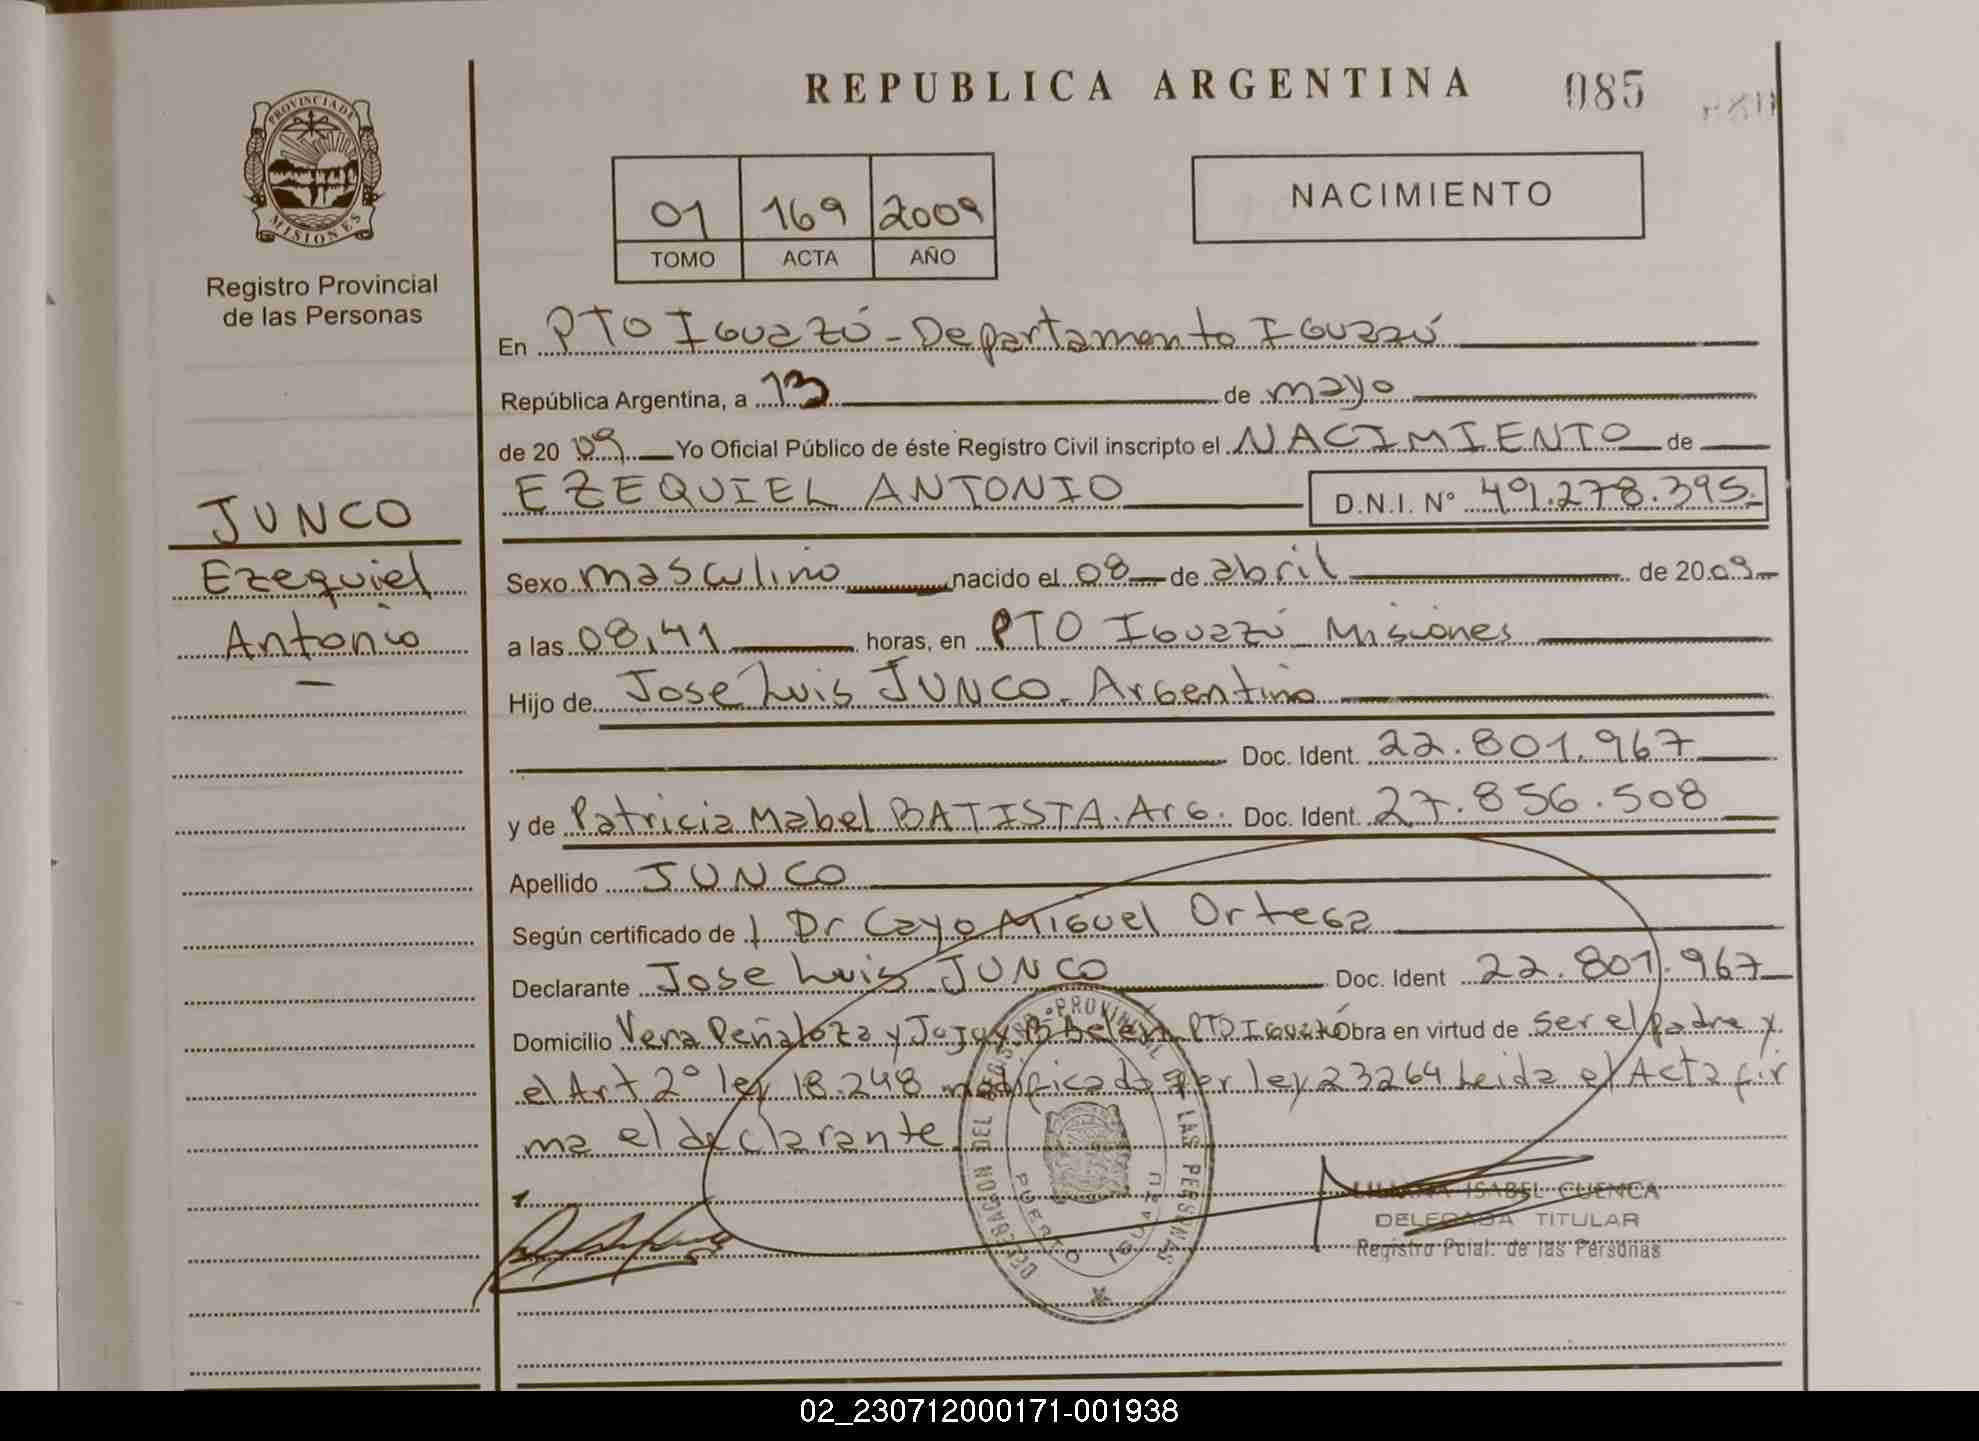 REPUBLICA ARGENTINA
085
PROVINCIA DE
MISIONES
Registro Provincial
de las Personas
01 169 2009
TOMO ACTA AÑO
NACIMIENTO
En PTO IGUAZÚ - Departamento IGUAZÚ
República Argentina, a 13 de mayo
de 20 09 Yo Oficial Público de éste Registro Civil inscripto el NACIMIENTO de
EZEQUIEL ANTONIO D.N.I. Nº 49.278.395.
JUNCO
Ezequiel
Antonio
Sexo masculino nacido el 08 de abril de 2009
a las 08,41 horas, en PTO Iguazú Misiones
Hijo de Jose Luis JUNCO - Argentino
Doc. Ident. 22.801.967
y de Patricia Mabel BATISTA. Arg. Doc. Ident. 27.856.508
Apellido JUNCO
Según certificado de Dr Cayo Miguel Ortega
Declarante Jose Luis JUNCO Doc. Ident 22.801.967
Domicilio Vera Peñaloza y Jujuy B Belén PTO Iguazú Obra en virtud de ser el padre y
el Art 2º ley 18.248 modificado por ley 23264 Leida el Acta fir
ma el declarante.
DELEGACION DEL REGISTRO PROVINCIAL DE LAS PERSONAS
PUERTO IGUAZU
LILIANA ISABEL CUENCA
DELEGADA TITULAR
Registro Pcial. de las Personas
02_230712000171-001938